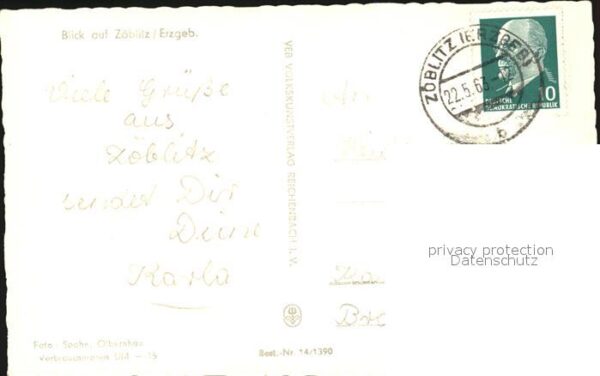 Blick auf Zöblitz/Erzgeb.
Viele Grüße
aus
Zöblitz
sendet Dir
Deine
Karla
Foto: Spahn, Olbernhau
VEB VOLKSKUNSTVERLAG REICHENBACH i. V.
Best.-Nr 14/1390
ZÖBLITZ (ERZGEB)
22.5.63
b
10
DEUTSCHE
DEMOKRATISCHE REPUBLIK
privacy protection
Datenschutz